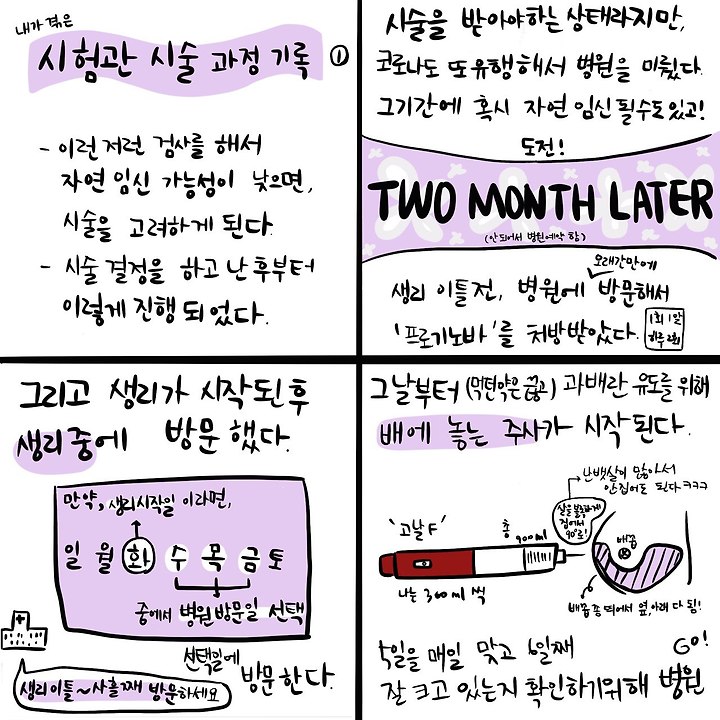 내가 겪은
시험관 시술 과정 기록 ①
- 이런저런 검사를 해서
자연 임신 가능성이 낮으면,
시술을 고려하게 된다.
- 시술 결정을 하고 난 후부터
이렇게 진행 되었다.
시술을 받아야하는 상태라지만,
코로나도 또 유행해서 병원을 미뤘다.
그기간에 혹시 자연 임신 될수도 있고!
도전!
TWO MONTH LATER
(안되어서 병원예약 함)
오래간만에
생리 이틀전, 병원에 방문해서
'프로기노바'를 처방받았다.
1회 1알
하루 2회
그리고 생리가 시작된 후
생리 중에 방문 했다.
만약, 생리시작일 이라면,
일 월 화 수 목 금 토
중에서 병원방문일 선택
선택일에
방문한다.
생리이틀~사흘째 방문하세요
그날부터 (먹던약은 끊고) 과배란 유도를 위해
배에 놓는 주사가 시작된다.
난 뱃살이 많아서
안집어도 된다 ㅋㅋㅋ
살을 볼록하게
집어서
90°로!
'고날 F'
총
900ml
배꼽
나는 300ml 씩
배꼽 좀 띄어서 옆, 아래 다 됨!
5일을 매일 맞고 6일째
잘 크고 있는지 확인하기위해 병원
GO!